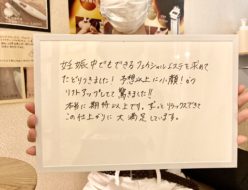 妊娠中でもできるフェイシャルエステを求めて
たどりつきました！予想以上に小顔！かつ
リフトアップしてて驚きました!!
本当に期待以上です。ずっとリラックスできて
この仕上がりに大満足しています。